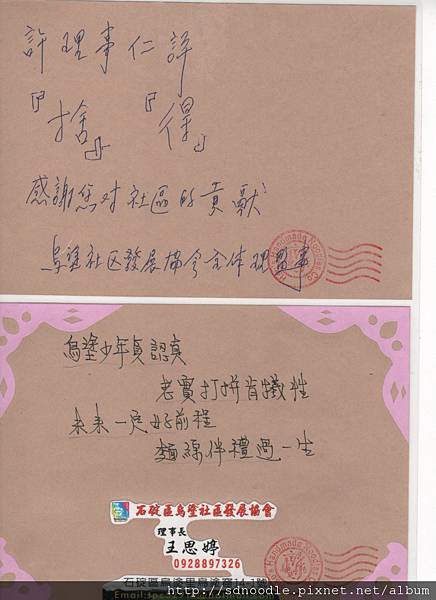 許理事仁詳
『捨』『得』
感謝您对社區的貢獻
烏塗社区發展協会全体理監事
Handmade Noodle Co.
烏塗少年真認真
老實打拼肯犧牲
未來一定好前程
麵線伴禮過一生
石碇區烏塗社區發展協會
理事長
王思婷
0928897326
石碇區烏塗里烏塗窟14-1號
http://sdnoodle.pixnet.net/album